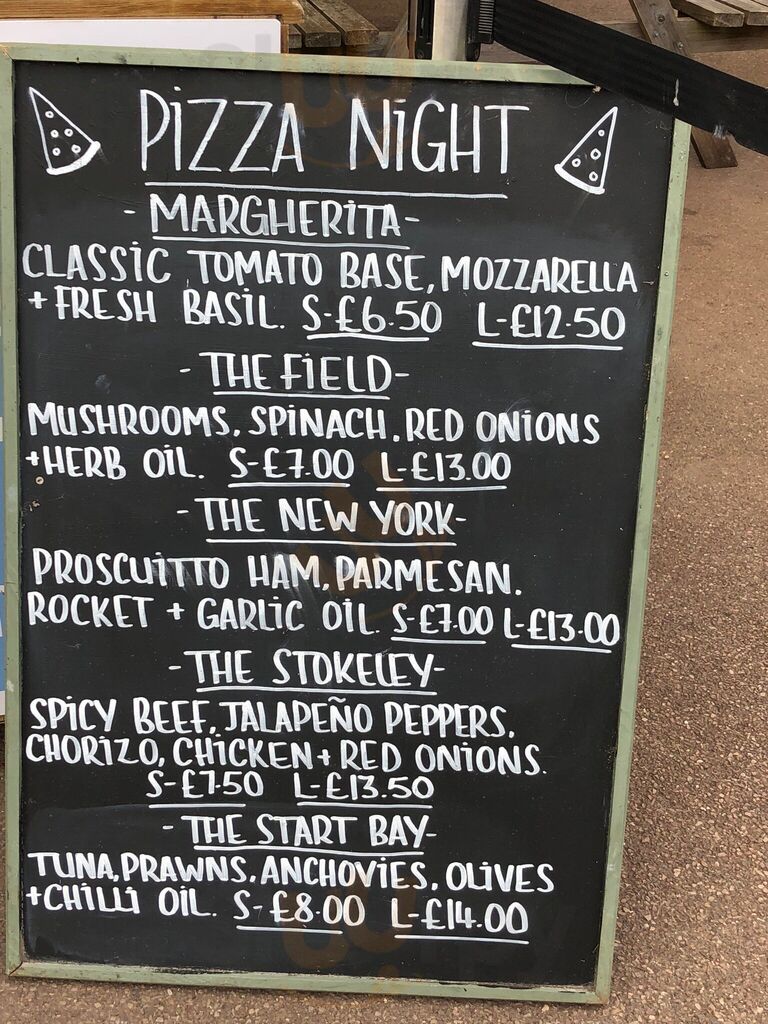 PIZZA NIGHT
- MARGHERITA-
CLASSIC TOMATO BASE, MOZZARELLA
+ FRESH BASIL. S-£6.50 L-£12.50
- THE FIELD-
MUSHROOMS, SPINACH, RED ONIONS
+HERB OIL. S-£7.00 L-£13.00
- THE NEW YORK-
PROSCUITTO HAM, PARMESAN,
ROCKET + GARLIC OIL. S-£7.00 L-£13.00
- THE STOKELEY-
SPICY BEEF, JALAPEÑO PEPPERS,
CHORIZO, CHICKEN + RED ONIONS.
S-£7.50 L-£13.50
- THE START BAY-
TUNA, PRAWNS, ANCHOVIES, OLIVES
+CHILLI OIL. S-£8.00 L-£14.00